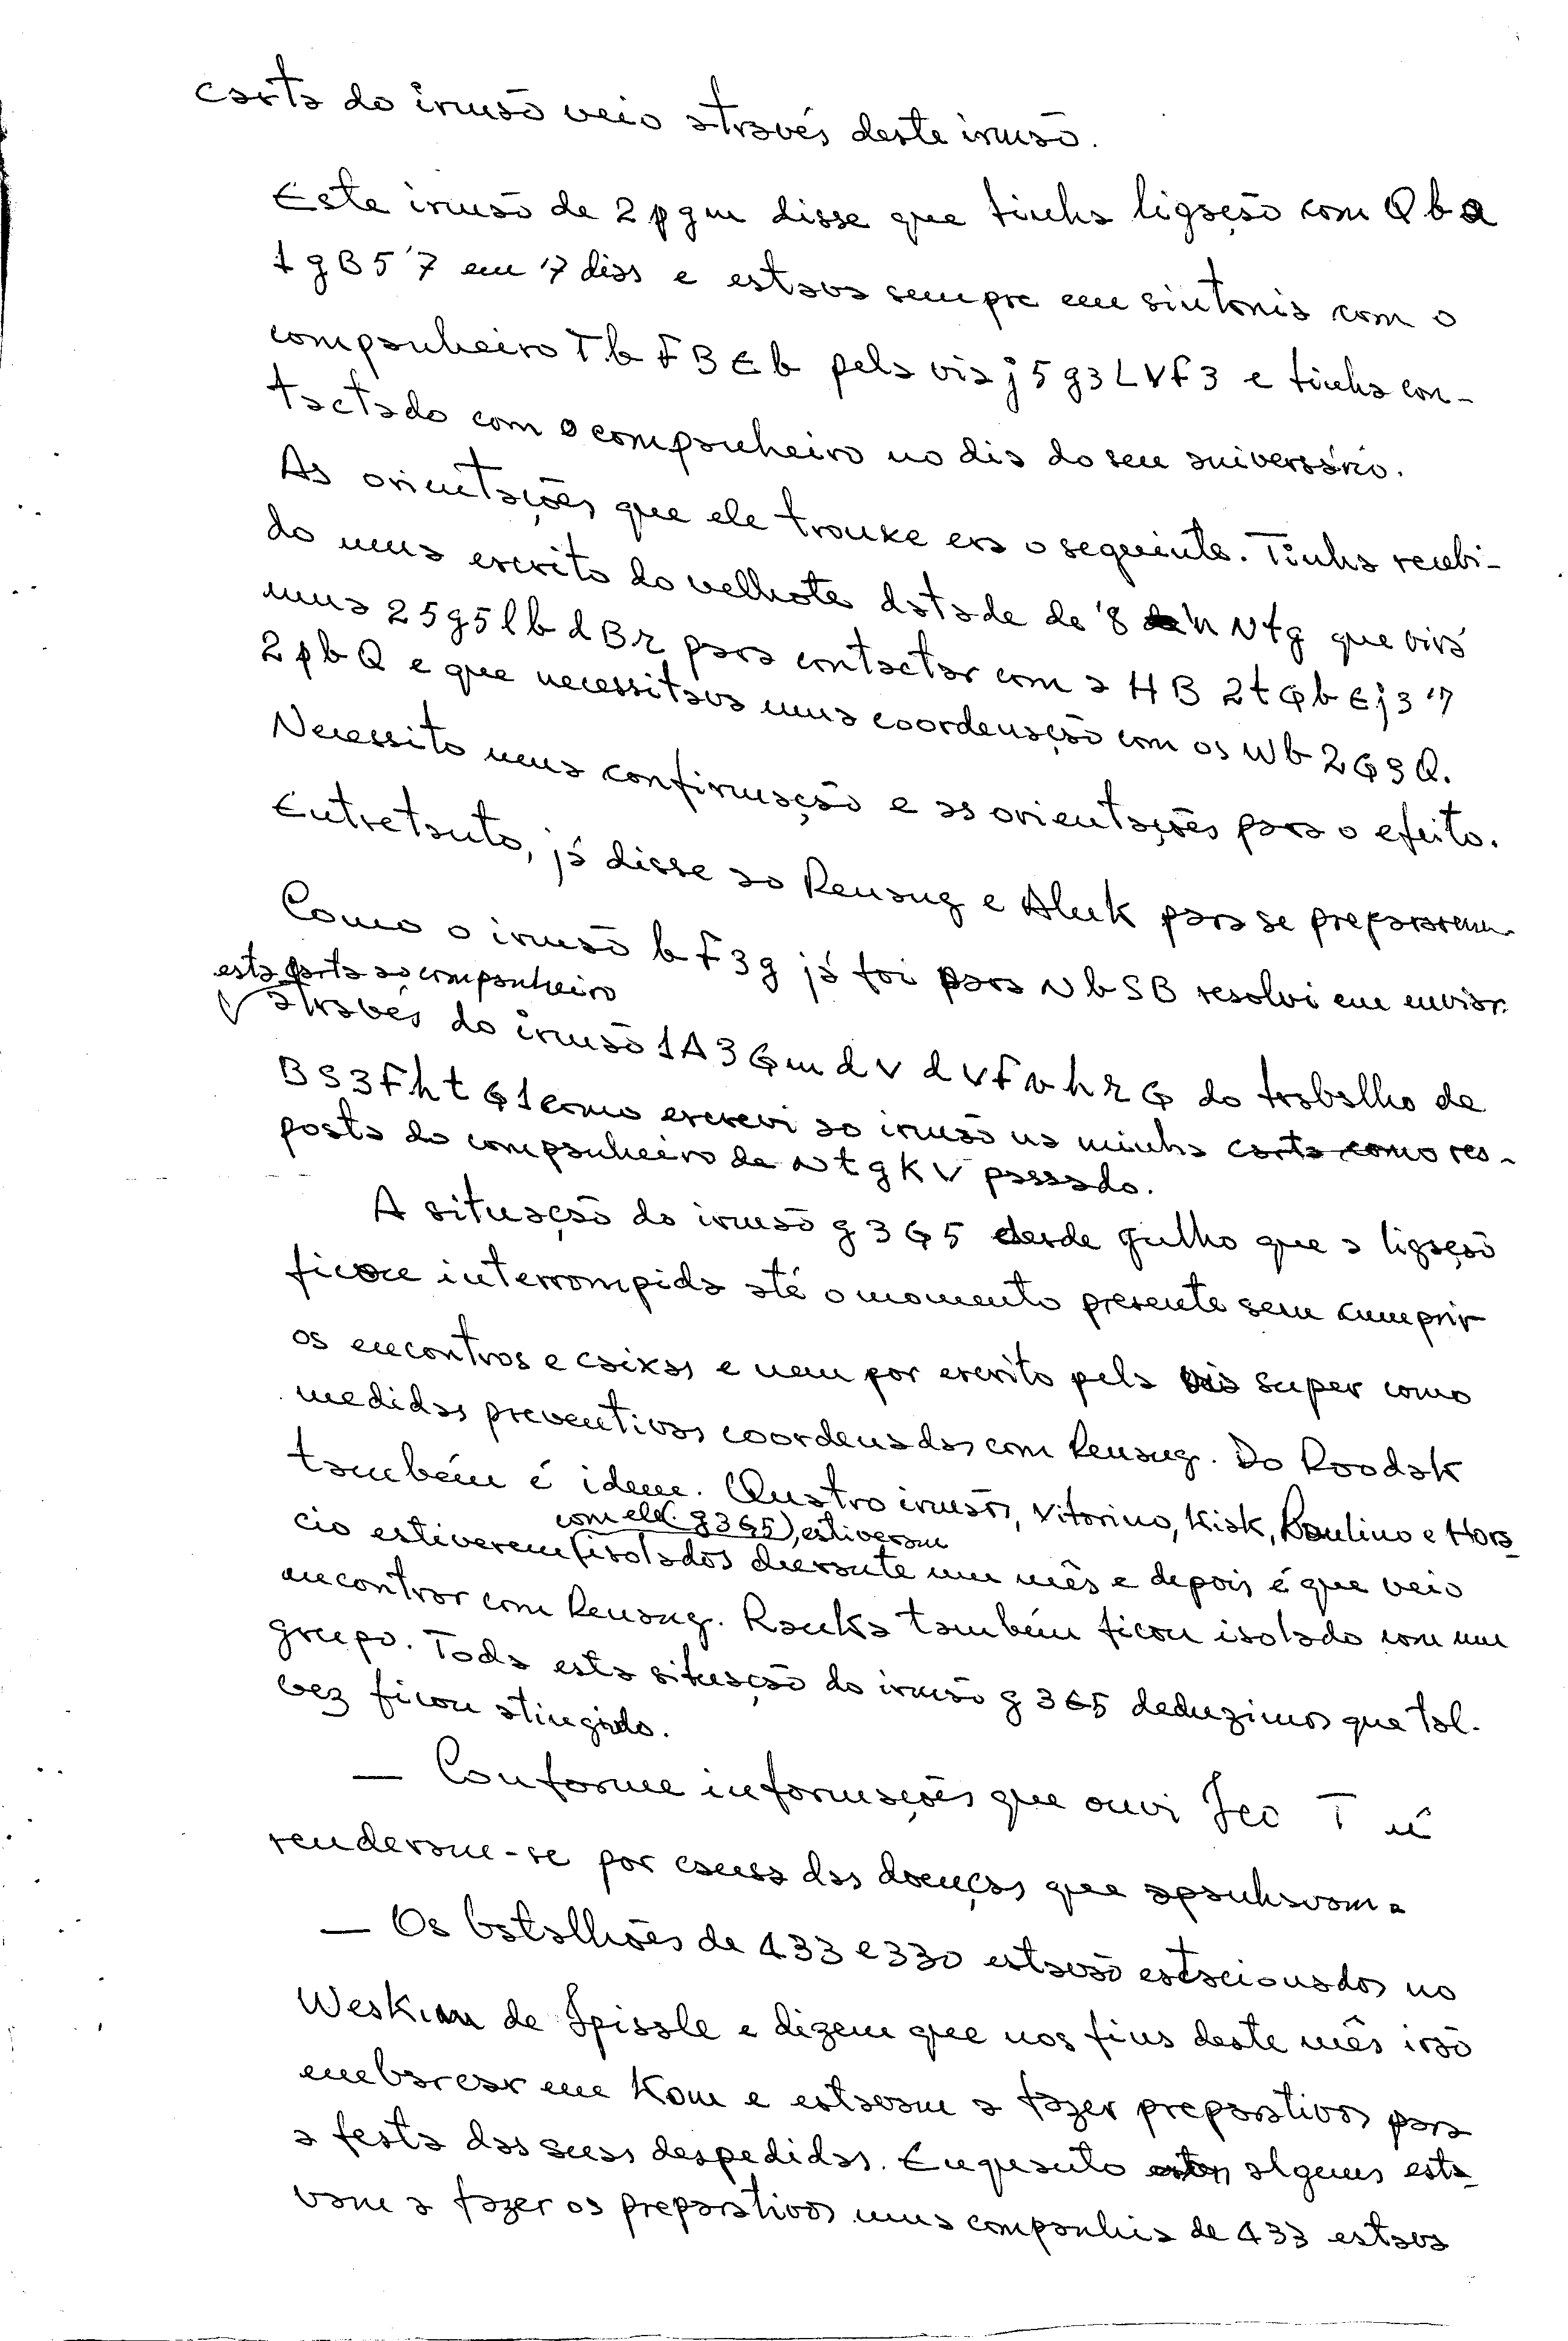 carta do irmão veio através deste irmão.
Este irmão de 2pgm disse que tinha ligação com Q b a
t g B 5 '7 em '7 dias e estava sempre em sintonia com o
companheiro T b F B E b pela via j 5 g 3 L V f 3 e tinha con-
tactado com o companheiro no dia do seu aniversário.
As orientações que ele trouxe era o seguinte. Tinha recebi-
do uma escrito do velhote datada de '8 h N t g que virá
uma 2 5 g 5 l b d B r para contactar com a H B 2 t Q b E j 3 '7
2 p b Q e que necessitava uma coordenação com os W b 2 G 3 Q.
Necessito uma confirmação e as orientações para o efeito.
Entretanto, já disse ao Renang e Aluk para se prepararem.
Como o irmão b F 3 g já foi para N b S B resolvi em enviar
esta carta ao companheiro
através do irmão 1 A 3 G m d V d V f v h r G do trabalho de
B S 3 F h t G 1 como escrevi ao irmão na minha carta como res-
posta do companheiro de N t g K V passado.
A situação do irmão g 3 G 5 desde Julho que a ligação
ficou interrompida até o momento presente sem cumprir
os encontros e caixas e nem por escrito pela via super como
medidas preventivas coordenadas com Renang. Do Roodak
também é idem. Quatro irmãos, Vitorino, Kisk, Paulino e Horá-
com ele (g 3 G 5), estiveram
cio estiverem isolados durante um mês e depois é que veio
encontrar com Renang. Ranka também ficou isolado com um
grupo. Toda esta situação do irmão g 3 G 5 deduzimos que tal-
vez ficou atingido.
— Conforme informações que ouvi Jco T ú
renderam-se por causa das doenças que apanhavam.
— Os batalhões de 433 e 330 estavão estacionados no
Weskim de Ipissle e dizem que nos fins deste mês irão
embarcar em Kom e estavam a fazer preparativos para
a festa das suas despedidas. Enquanto alguns esta-
vam a fazer os preparativos uma companhia de 433 estava